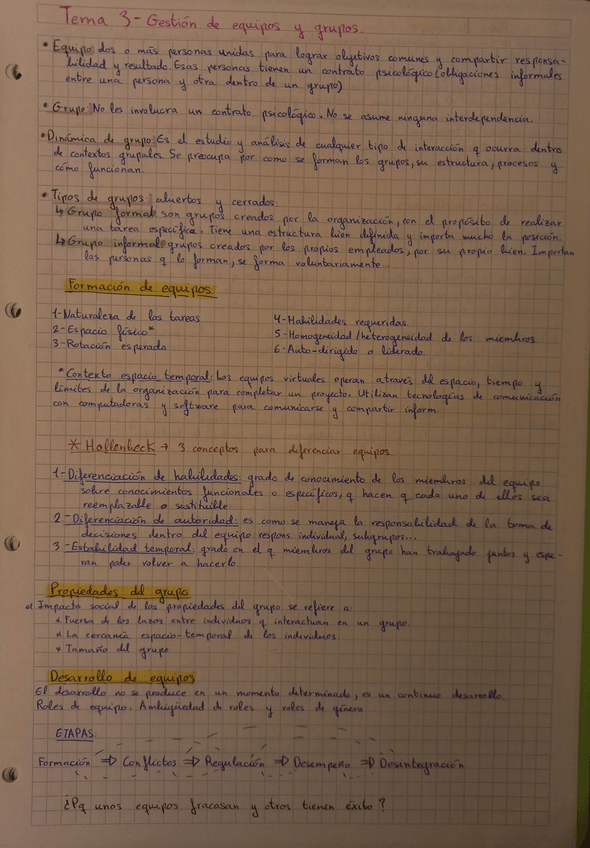 Tema 3- Gestión de equipos y grupos.
• Equipo: dos o más personas unidas para lograr objetivos comunes y compartir responsa-
bilidad y resultado. Esas personas tienen un contrato psicológico (obligaciones informales
entre una persona y otra dentro de un grupo)
• Grupo: No les involucra un contrato psicológico. No se asume ninguna interdependencia.
• Dinámica de grupo: Es el estudio y análisis de cualquier tipo de interacción q ocurra dentro
de contextos grupales. Se preocupa por como se forman los grupos, su estructura, procesos y
cómo funcionan.
• Tipos de grupos: abiertos y cerrados.
↳ Grupo formal: son grupos creados por la organización, con el propósito de realizar
una tarea específica. Tiene una estructura bien definida y importa mucho la posición.
↳ Grupo informal: grupos creados por los propios empleados, por su propio bien. Importan
las personas q lo forman, se forma voluntariamente.
Formación de equipos.
1-Naturaleza de las tareas
2-Espacio físico*
3-Rotación esperada
4-Habilidades requeridas.
5-Homogeneidad/heterogeneidad de los miembros
6-Auto-dirigido o liderado.
*Contexto espacio temporal: Los equipos virtuales operan através del espacio, tiempo y
límites de la organización para completar un proyecto. Utilizan tecnologías de comunicación
con computadoras y software para comunicarse y compartir inform.
* Hollenbeck → 3 conceptos para diferenciar equipos.
1-Diferenciación de habilidades: grado de conocimiento de los miembros del equipo
sobre conocimientos funcionales o específicos, q hacen q cada uno de ellos sea
reemplazable o sustituible
2-Diferenciación de autoridad: es como se maneja la responsabilidad de la toma de
decisiones dentro del equipo: respons. individual, subgrupos...
3-Estabilidad temporal: grado en el q miembros del grupo han trabajado juntos y espe-
ran poder volver a hacerlo.
Propiedades del grupo
a) Impacto social de las propiedades del grupo se refiere a:
* Fuerza de los lazos entre individuos q interactúan en un grupo.
* La cercanía espacio-temporal de los individuos.
* Tamaño del grupo
Desarrollo de equipos
El desarrollo no se produce en un momento determinado, es un continuo desarrollo.
Roles de equipo: Ambigüedad de roles y roles de género
ETAPAS:
Formación ⇒ Conflictos ⇒ Regulación ⇒ Desempeño ⇒ Desintegración
¿Pq unos equipos fracasan y otros tienen éxito?